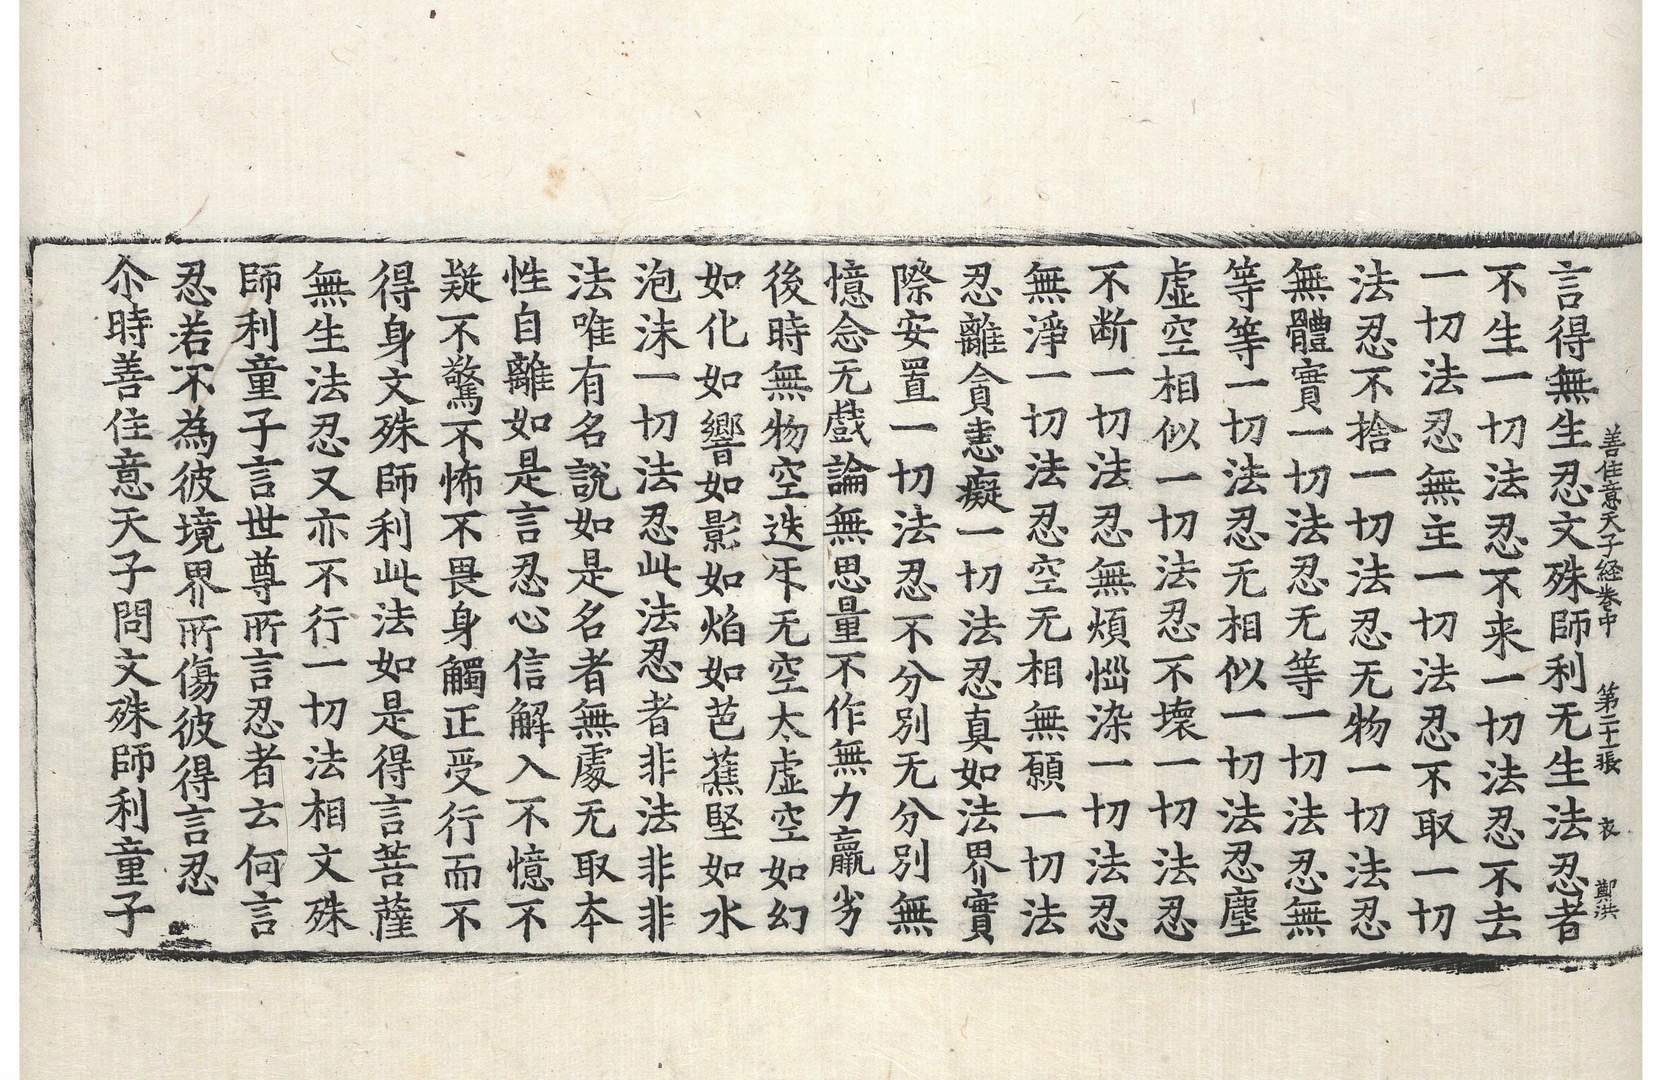 善住意天子経巻中　第二十一張　衣　鄭洪
言得無生忍文殊師利无生法忍者
不生一切法忍不来一切法忍不去
一切法忍無主一切法忍不取一切
法忍不捨一切法忍无物一切法忍
無體實一切法忍无等一切法忍無
等等一切法忍无相似一切法忍塵
虛空相似一切法忍不壞一切法忍
不断一切法忍無煩惱染一切法忍
無淨一切法忍空无相無願一切法
忍離貪恚癡一切法忍真如法界實
際安置一切法忍不分別无分別無
憶念无戲論無思量不作無力羸劣
後時無物空迭㸦无空太虛空如幻
如化如響如影如焰如芭蕉堅如水
泡沫一切法忍此法忍者非法非非
法唯有名說如是名者無處无取本
性自離如是言忍心信解入不憶不
疑不驚不怖不畏身觸正受行而不
得身文殊師利此法如是得言菩薩
無生法忍又亦不行一切法相文殊
師利童子言世尊所言忍者云何言
忍若不為彼境界所傷彼得言忍
尒時善住意天子問文殊師利童子